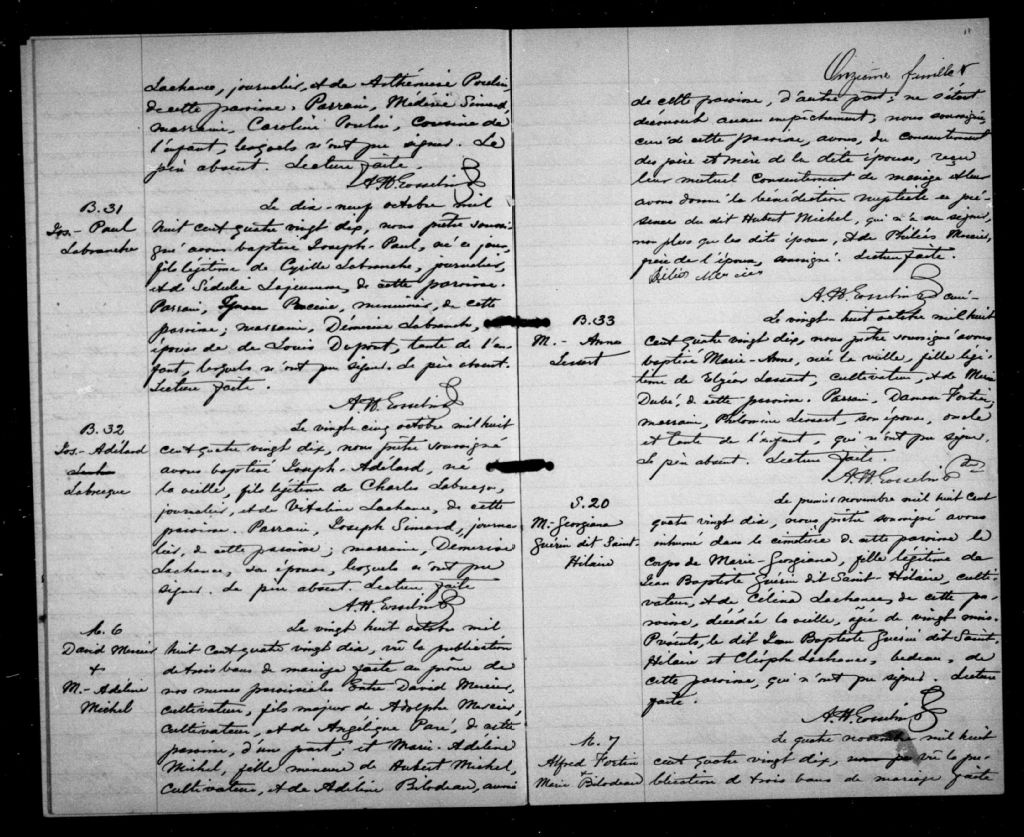 Lachance, journalier, et de Arthémise Poulin,
de cette paroisse. Parrain, Médéric Simard,
marraine, Caroline Poulin, cousine de
l'enfant, lesquels n'ont pu signer. Le
père absent. Lecture faite.
A.H. Gosselin
B.31
Jos.- Paul
Labranche
Le dix-neuf octobre mil
huit cent quatre vingt dix, nous prêtre soussi-
gné avons baptisé Joseph-Paul, né ce jour,
fils légitime de Cyrille Labranche, journalier,
et de Sédulie Lajeunesse, de cette paroisse.
Parrain, Racine, menuisier, de cette
paroisse; marraine, Démerise Labranche,
épouse de de Louis Dupont, tante de l'en-
fant, lesquels n'ont pu signer. Le père absent.
Lecture faite.
A.H. Gosselin
B.32
Jos.- Adélard
Labrecque
Le vingt cinq octobre mil huit
cent quatre vingt dix, nous prêtre soussigné
avons baptisé Joseph-Adélard, né
la veille, fils légitime de Charles Labrecque,
journalier, et de Vitaline Lachance, de cette
paroisse. Parrain, Joseph Simard, journa-
lier, de cette paroisse; marraine, Démerise
Lachance, son épouse, lesquels n'ont pu
signer. Le père absent. Lecture faite
A.H. Gosselin
M. 6
David Mercier
+
M.- Adéline
Michel
Le vingt huit octobre mil
huit cent quatre vingt dix, vu la publication
de trois bans de mariage faite au prône de
nos messes paroissiales Entre David Mercier,
cultivateur, fils majeur de Adolphe Mercier,
cultivateur, et de Angélique Paré, de cette
paroisse, d'un part; et Marie-Adéline
Michel, fille mineure de Hubert Michel,
cultivateur, et de Adéline Bilodeau, aussi
Onzième feuillet
de cette paroisse, d'autre part; ne s'étant
découvert aucun empêchement, nous soussigné,
curé de cette paroisse, avons, du consentement
des père et mère de la dite épouse, reçu
leur mutuel consentement de mariage et leur
avons donné la bénédiction nuptiale en pré-
sence du dit Hubert Michel, qui n'a su signer,
non plus que les dits époux, et de Philéas Mercier,
frère de l'époux, soussigné. Lecture faite.
Mercier
A.H. Gosselin curé-
B.33
M.- Anne
Lessart
Le vingt-huit octobre mil huit
cent quatre vingt dix, nous prêtre soussigné avons
baptisé Marie-Anne, née la veille, fille légi-
time de Elzéar Lessart, cultivateur, et de Marie
Dubé, de cette paroisse. Parrain, Damase Fortier,
marraine, Philomène Lessart, son épouse, oncle
et tante de l'enfant, qui n'ont pu signer.
Le père absent. Lecture faite.
A.H. Gosselin
S.20
M.- Georgiana
Guérin dit Saint-
Hilaire
Le premier novembre mil huit cent
quatre vingt dix, nous prêtre soussigné avons
inhumé dans le cimetière de cette paroisse le
corps de Marie-Georgiana, fille légitime de
Jean Baptiste Guérin dit Saint-Hilaire, culti-
vateur, et de Célina Lachance, de cette pa-
roisse, décédée la veille, âgée de vingt mois.
Présents, le dit Jean Baptiste Guérin dit Saint-
Hilaire et Cléophe Lachance, bedeau, de
cette paroisse, qui n'ont pu signer. Lecture
faite.
A.H. Gosselin
M. 7
Alfred Fortier
+
Marie Bilodeau
Le quatre novembre mil huit
cent quatre vingt dix, vu la pu-
blication de trois bans de mariage faite